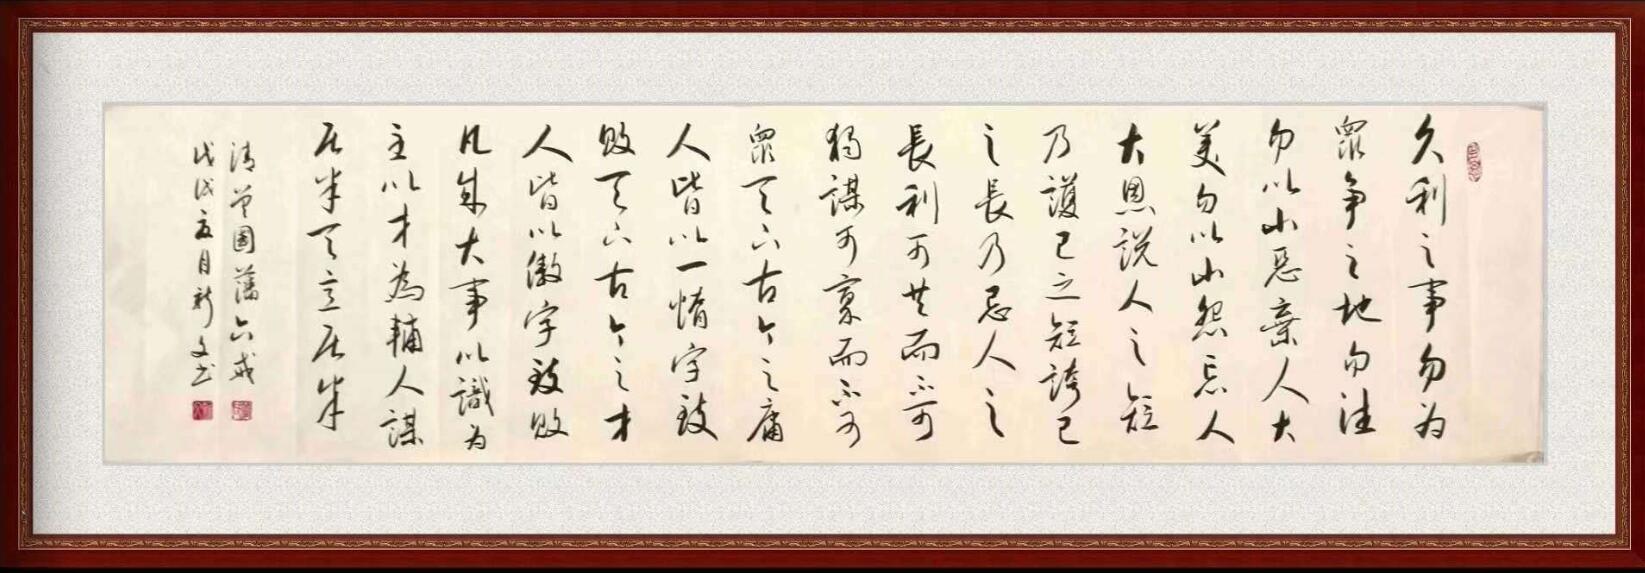 久利之事勿为
眾争之地勿往
勿以小惡棄人大
美勿以小怨忘人
大恩説人之短
乃護己之短誇己
之長乃忌人之
長利可共而不可
獨謀可寡而不可
眾天下古今之庸
人皆以一惰字致
敗天下古今之才
人皆以傲字致敗
凡成大事以識为
主以才為輔人謀
居半天意居半
清曾國藩六戒
戊戌夏月新文书